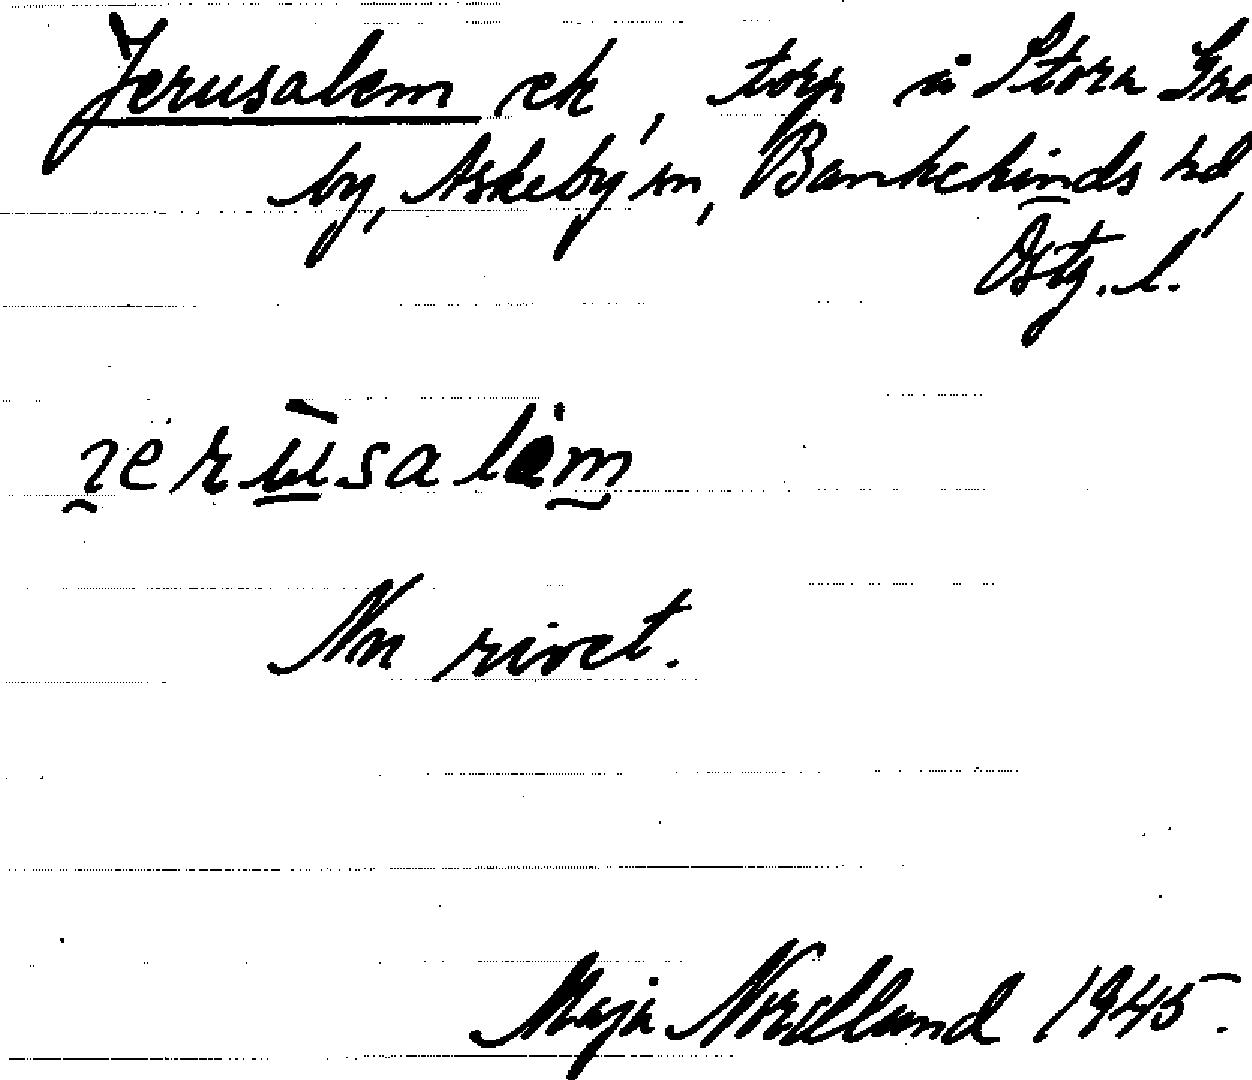 Jerusalem ck, torp å Stora Gre
by, Askeby sn, Bankekinds hd,
Östg. l.
Nu rivet.
Maja Nordland 1945.